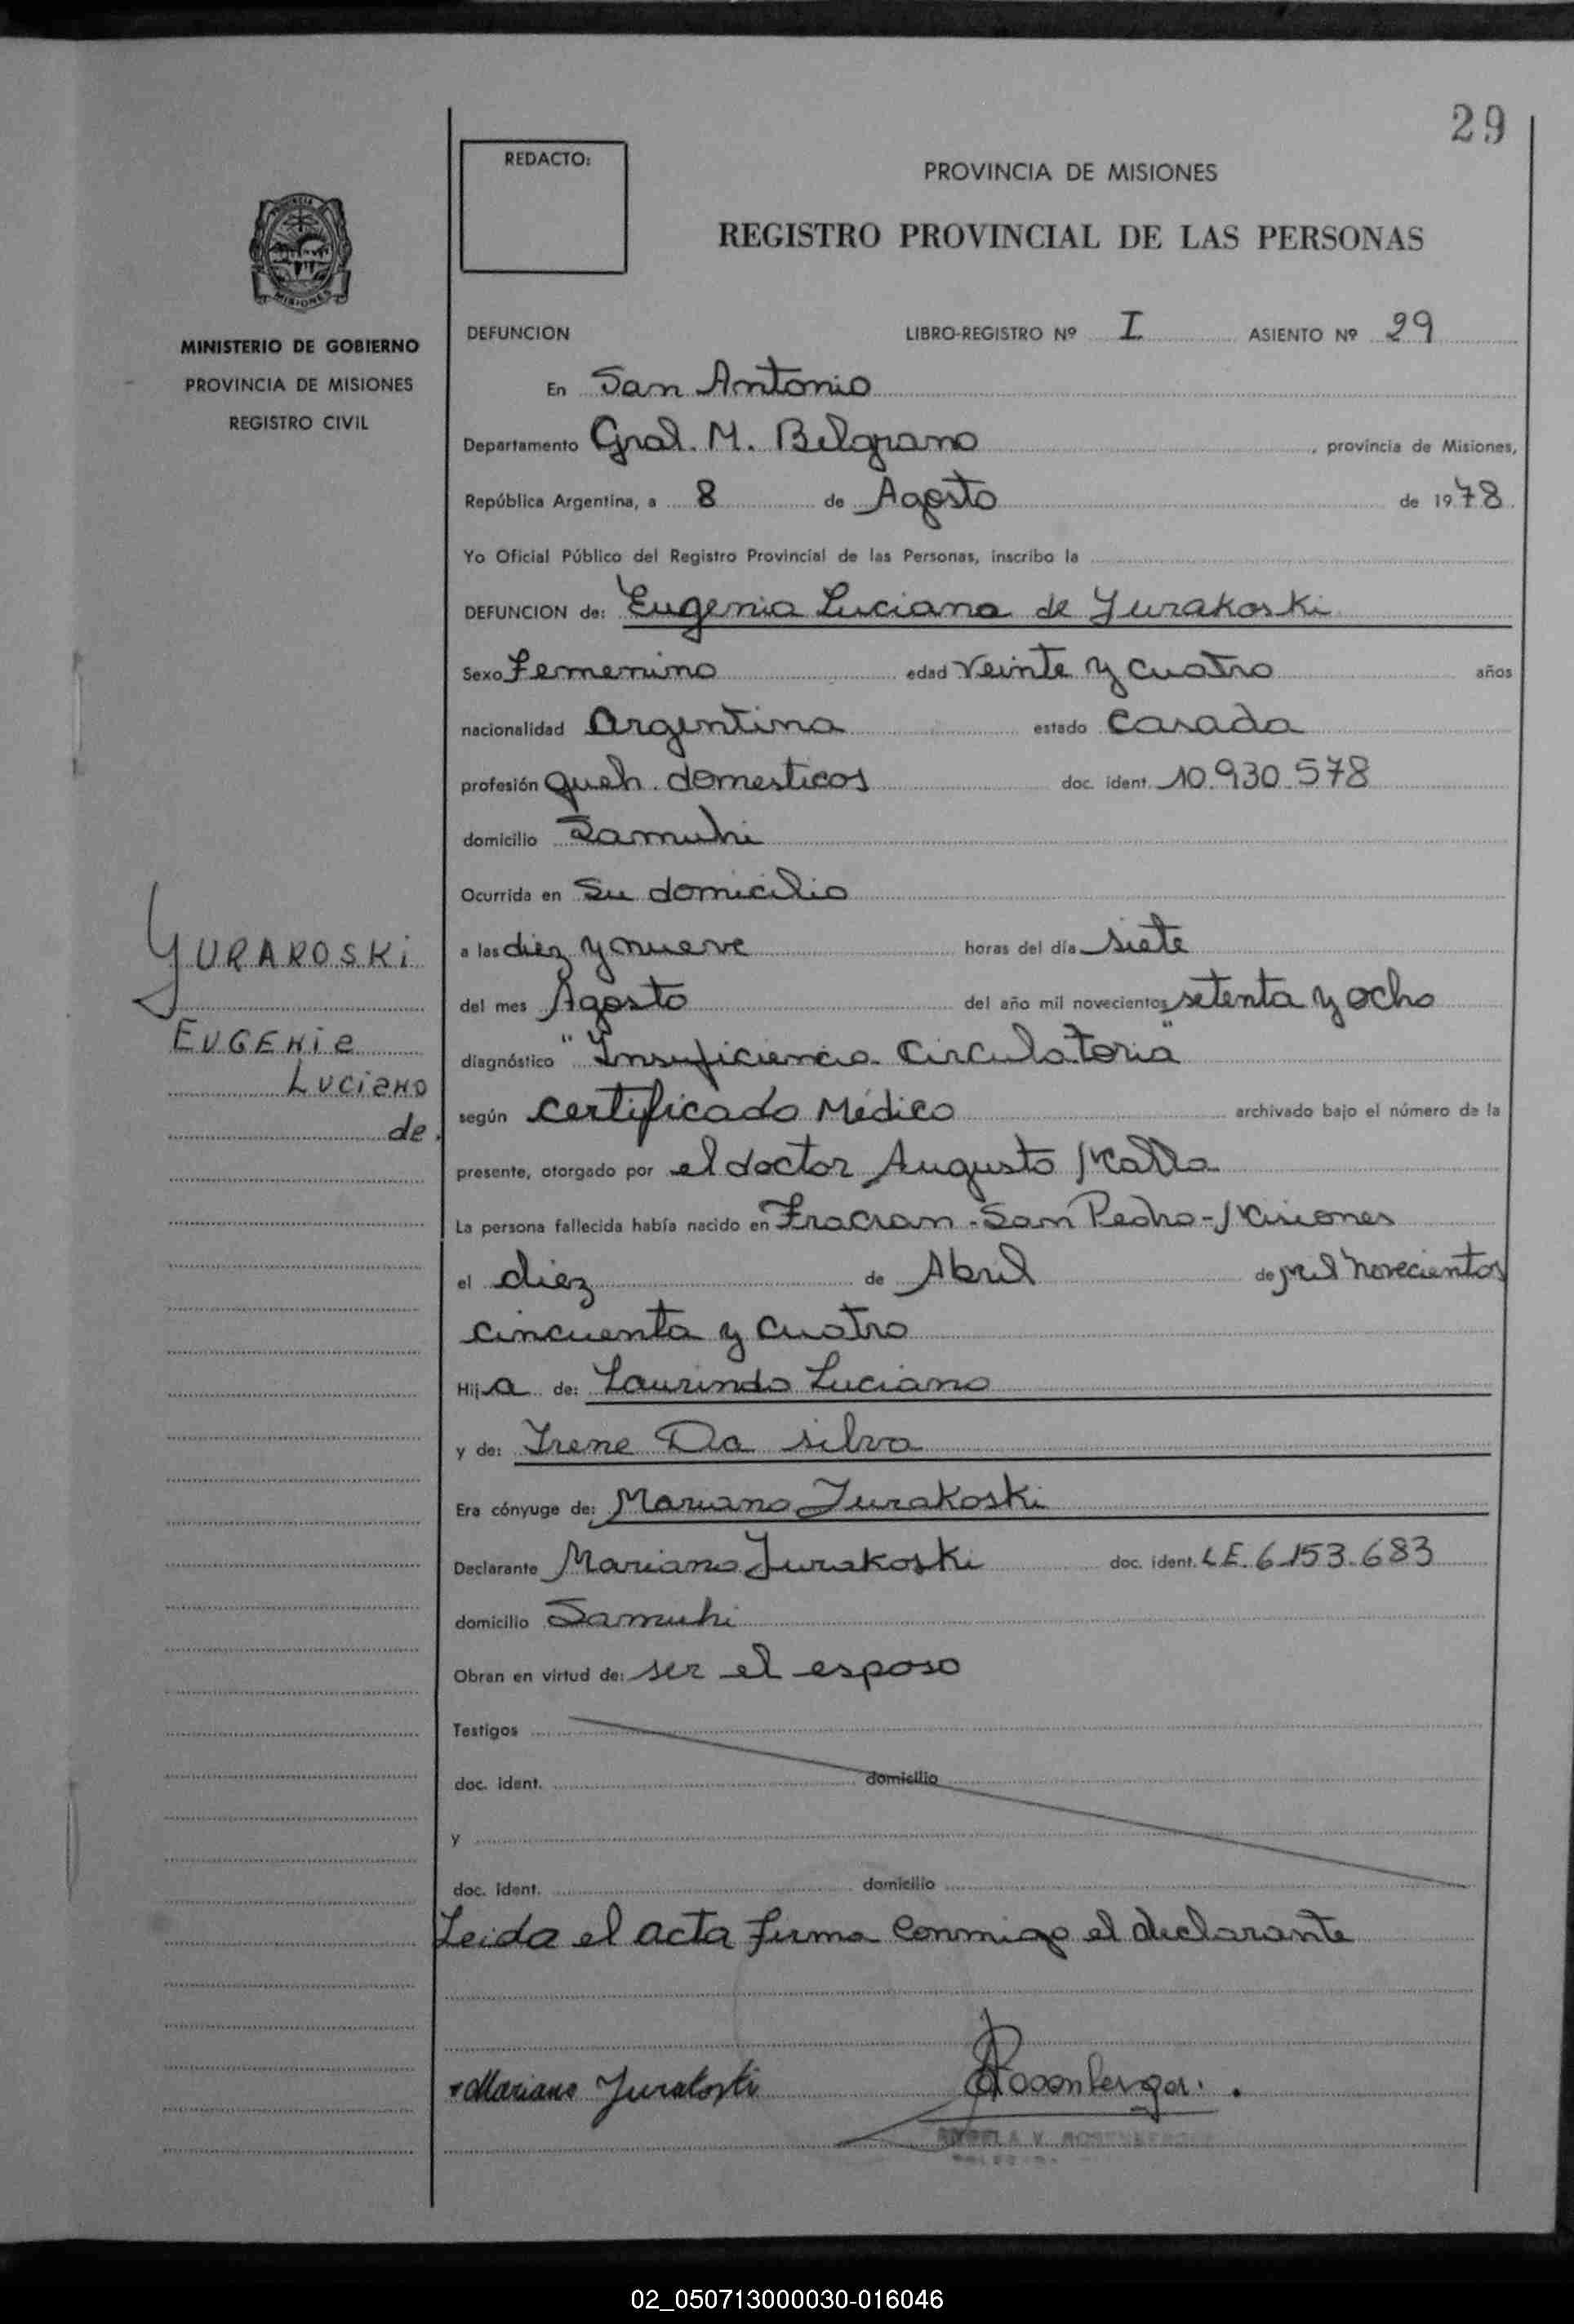 29
REDACTO:
PROVINCIA DE MISIONES
REGISTRO PROVINCIAL DE LAS PERSONAS
MISIONES
MINISTERIO DE GOBIERNO
PROVINCIA DE MISIONES
REGISTRO CIVIL
DEFUNCION LIBRO-REGISTRO Nº I ASIENTO Nº 29
En San Antonio
Departamento Gral. M. Belgrano, provincia de Misiones,
República Argentina, a 8 de Agosto de 1978
Yo Oficial Público del Registro Provincial de las Personas, inscribo la
DEFUNCION de: Eugenia Luciano de Yurakoski
Sexo Femenino edad veinte y cuatro años
nacionalidad Argentina estado casada
profesión queh. domesticos doc. ident. 10.930.578
domicilio Samuhi
Ocurrida en Su domicilio
a las diez y nueve horas del día siete
del mes Agosto del año mil novecientos setenta y ocho
diagnóstico "Insuficiencia Circulatoria"
según certificado Médico archivado bajo el número de la
presente, otorgado por el doctor Augusto
La persona fallecida había nacido en Fracran - San Pedro - Misiones
el diez de Abril de mil novecientos
cincuenta y cuatro
Hija de: Laurindo Luciano
y de: Irene Da silva
Era cónyuge de: Mariano Jurakoski
Declarante Mariano Jurakoski doc. ident. L.E. 6.153.683
domicilio Samuhi
Obran en virtud de: ser el esposo
Testigos
doc. ident. domicilio
y
doc. ident. domicilio
Leida el acta firma conmigo el declarante
Mariano Jurakoski
YURAROSKi
EUGENia
Luciano
de
02_050713000030-016046